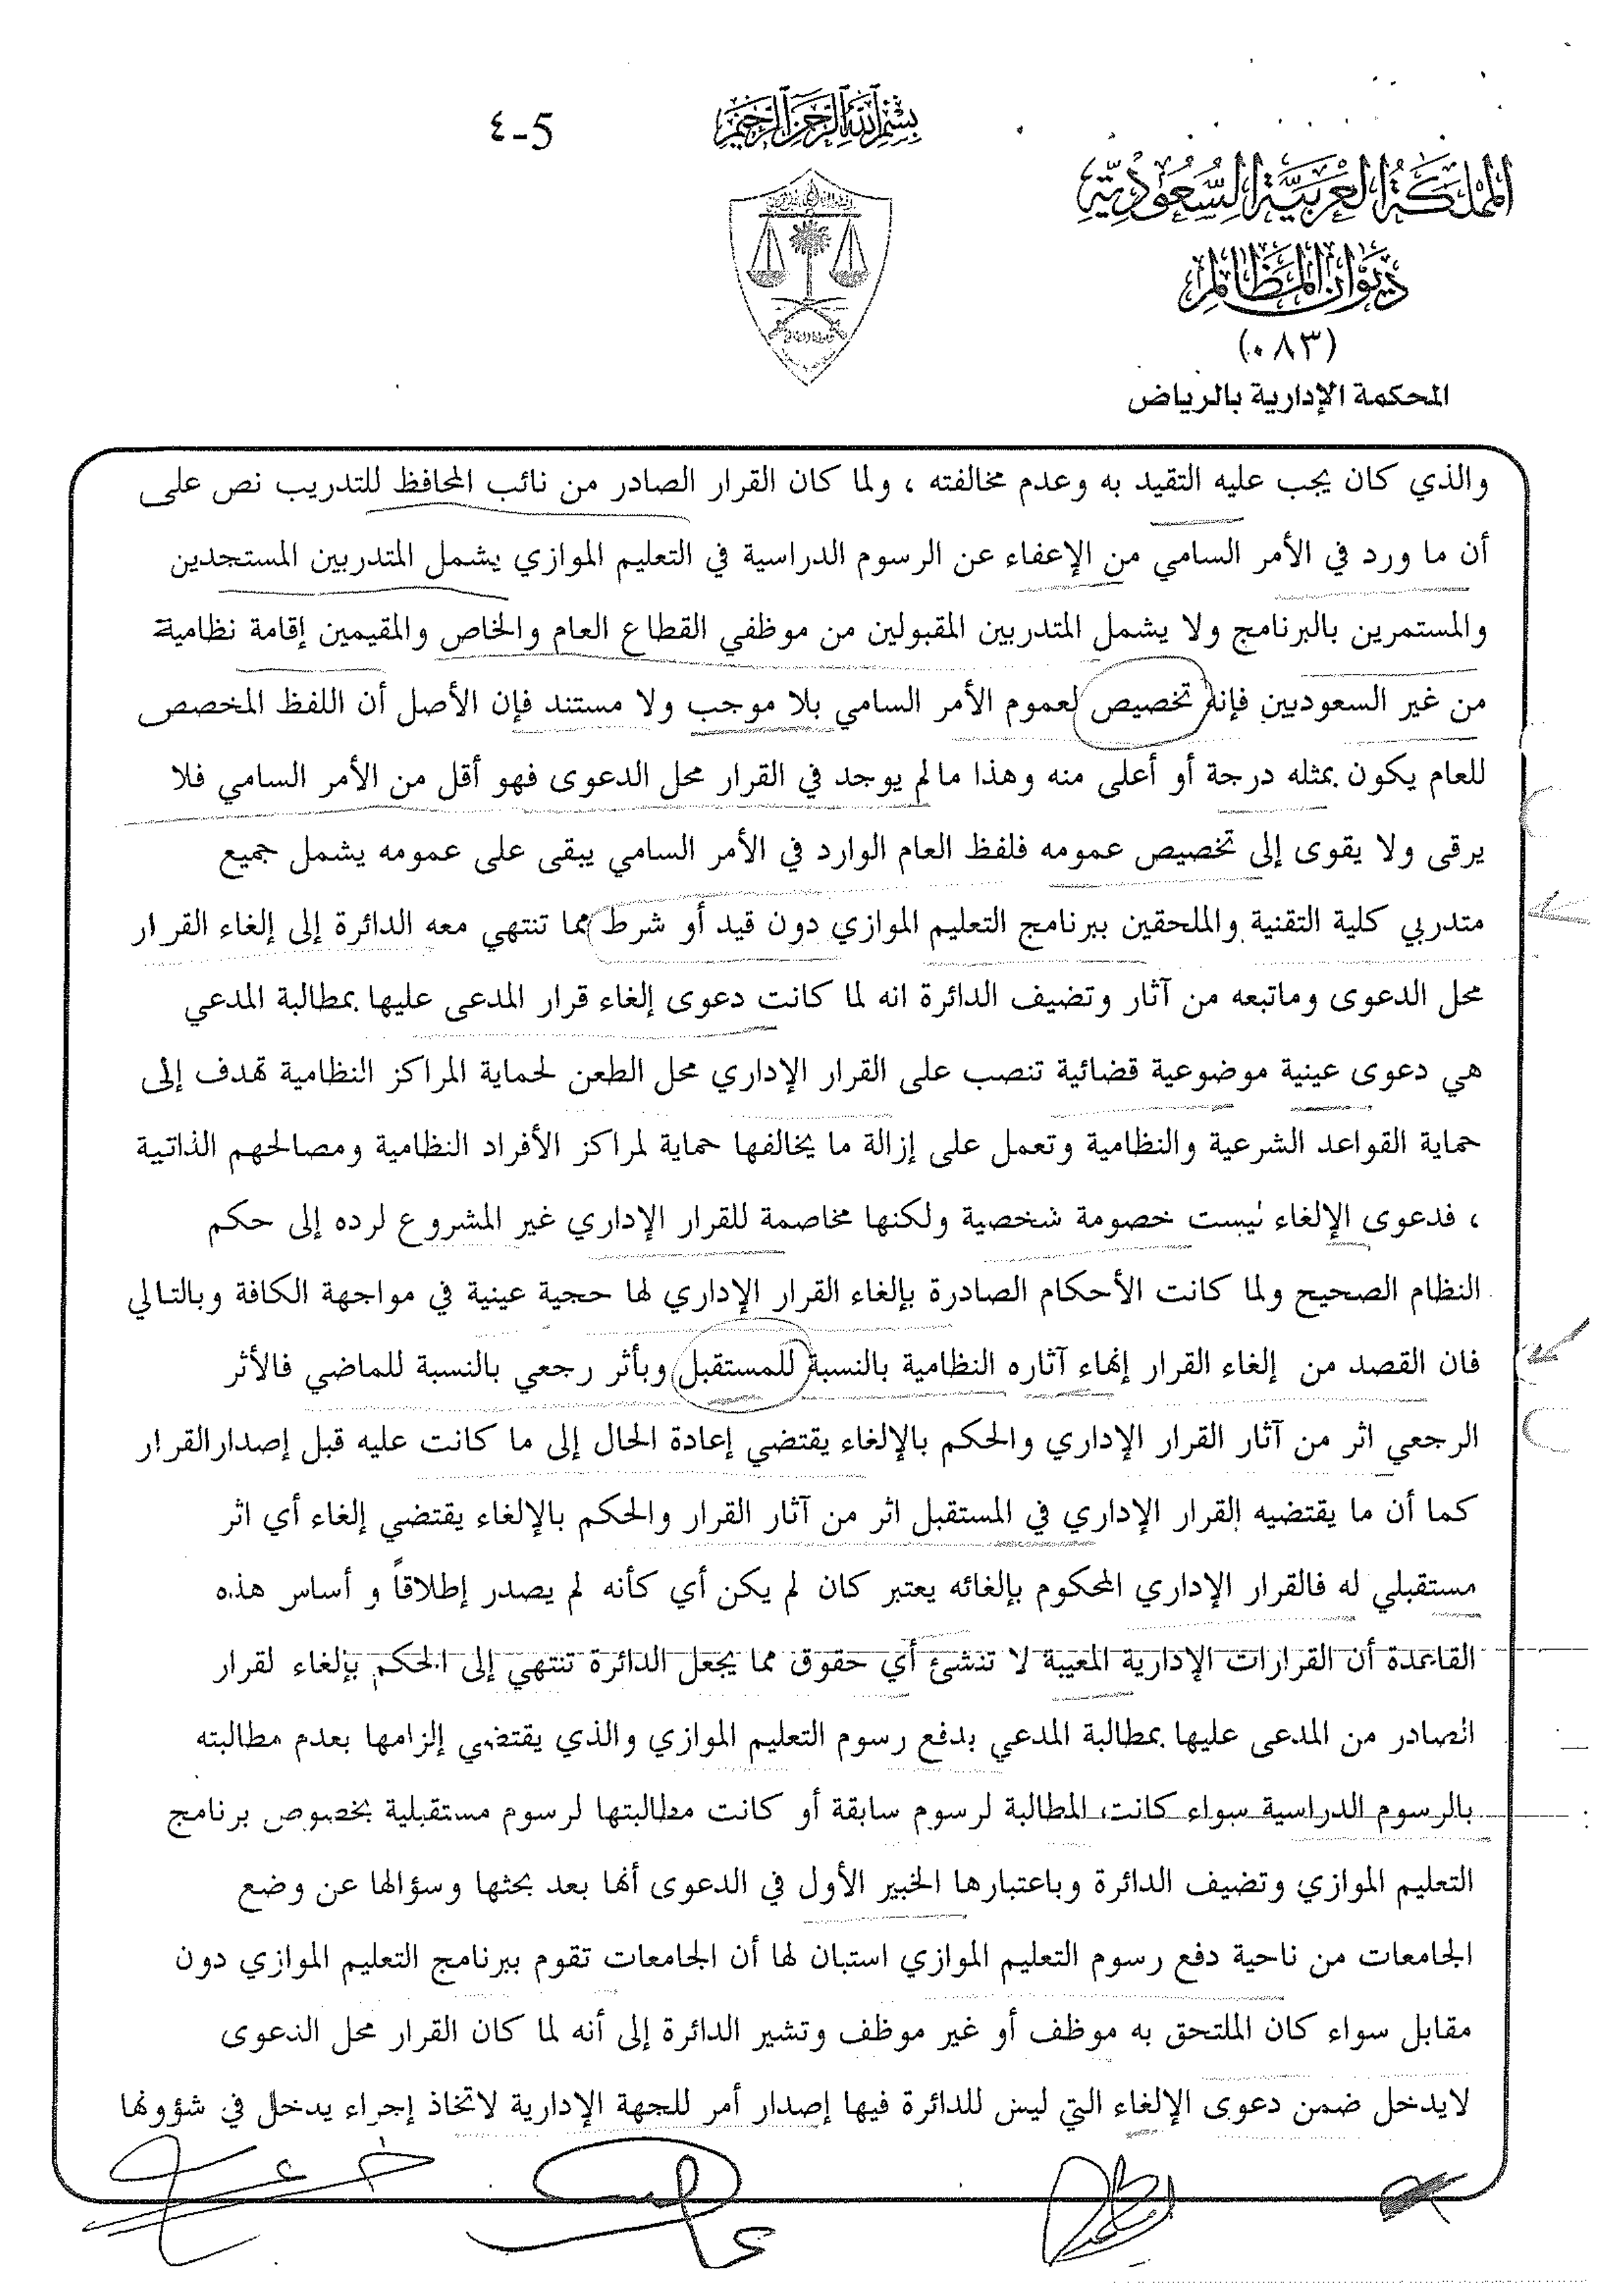 5-٤
بسم الله الرحمن الرحيم
المملكة العربية السعودية
ديوان المظالم
(٠٨٣)
المحكمة الإدارية بالرياض
والذي كان يجب عليه التقيد به وعدم مخالفته ، ولما كان القرار الصادر من نائب المحافظ للتدريب نص على
أن ما ورد في الأمر السامي من الإعفاء عن الرسوم الدراسية في التعليم الموازي يشمل المتدربين المستجدين
والمستمرين بالبرنامج ولا يشمل المتدربين المقبولين من موظفي القطاع العام والخاص والمقيمين إقامة نظامية
من غير السعوديين فإنه تخصيص لعموم الأمر السامي بلا موجب ولا مستند فإن الأصل أن اللفظ المخصص
للعام يكون بمثله درجة أو أعلى منه وهذا مالم يوجد في القرار محل الدعوى فهو أقل من الأمر السامي فلا
يرقى ولا يقوى إلى تخصيص عمومه فلفظ العام الوارد في الأمر السامي يبقى على عمومه يشمل جميع
متدربي كلية التقنية والملحقين ببرنامج التعليم الموازي دون قيد أو شرط مما تنتهي معه الدائرة إلى إلغاء القرار
محل الدعوى وماتبعه من آثار وتضيف الدائرة انه لما كانت دعوى إلغاء قرار المدعى عليها بمطالبة المدعي
هي دعوى عينية موضوعية قضائية تنصب على القرار الإداري محل الطعن لحماية المراكز النظامية تهدف إلى
حماية القواعد الشرعية والنظامية وتعمل على إزالة ما يخالفها حماية لمراكز الأفراد النظامية ومصالحهم الذاتية
، فدعوى الإلغاء ليست خصومة شخصية ولكنها مخاصمة للقرار الإداري غير المشروع لرده إلى حكم
النظام الصحيح ولما كانت الأحكام الصادرة بإلغاء القرار الإداري لها حجية عينية في مواجهة الكافة وبالتالي
فان القصد من إلغاء القرار إنهاء آثاره النظامية بالنسبة للمستقبل وبأثر رجعي بالنسبة للماضي فالأثر
الرجعي اثر من آثار القرار الإداري والحكم بالإلغاء يقتضي إعادة الحال إلى ما كانت عليه قبل إصدارالقرار
كما أن ما يقتضيه القرار الإداري في المستقبل اثر من آثار القرار والحكم بالإلغاء يقتضي إلغاء أي اثر
مستقبلي له فالقرار الإداري المحكوم بإلغائه يعتبر كان لم يكن أي كأنه لم يصدر إطلاقاً و أساس هذه
القاعدة أن القرارات الإدارية المعيبة لا تنشئ أي حقوق مما يجعل الدائرة تنتهي إلى الحكم بإلغاء لقرار
الصادر من المدعى عليها بمطالبة المدعي بدفع رسوم التعليم الموازي والذي يقتضي إلزامها بعدم مطالبته
بالرسوم الدراسية سواء كانت المطالبة لرسوم سابقة أو كانت مطالبتها لرسوم مستقبلية بخصوص برنامج
التعليم الموازي وتضيف الدائرة وباعتبارها الخبير الأول في الدعوى أنها بعد بحثها وسؤالها عن وضع
الجامعات من ناحية دفع رسوم التعليم الموازي استبان لها أن الجامعات تقوم ببرنامج التعليم الموازي دون
مقابل سواء كان الملتحق به موظف أو غير موظف وتشير الدائرة إلى أنه لما كان القرار محل الدعوى
لايدخل ضمن دعوى الإلغاء التي ليس للدائرة فيها إصدار أمر للجهة الإدارية لاتخاذ إجراء يدخل في شؤونها